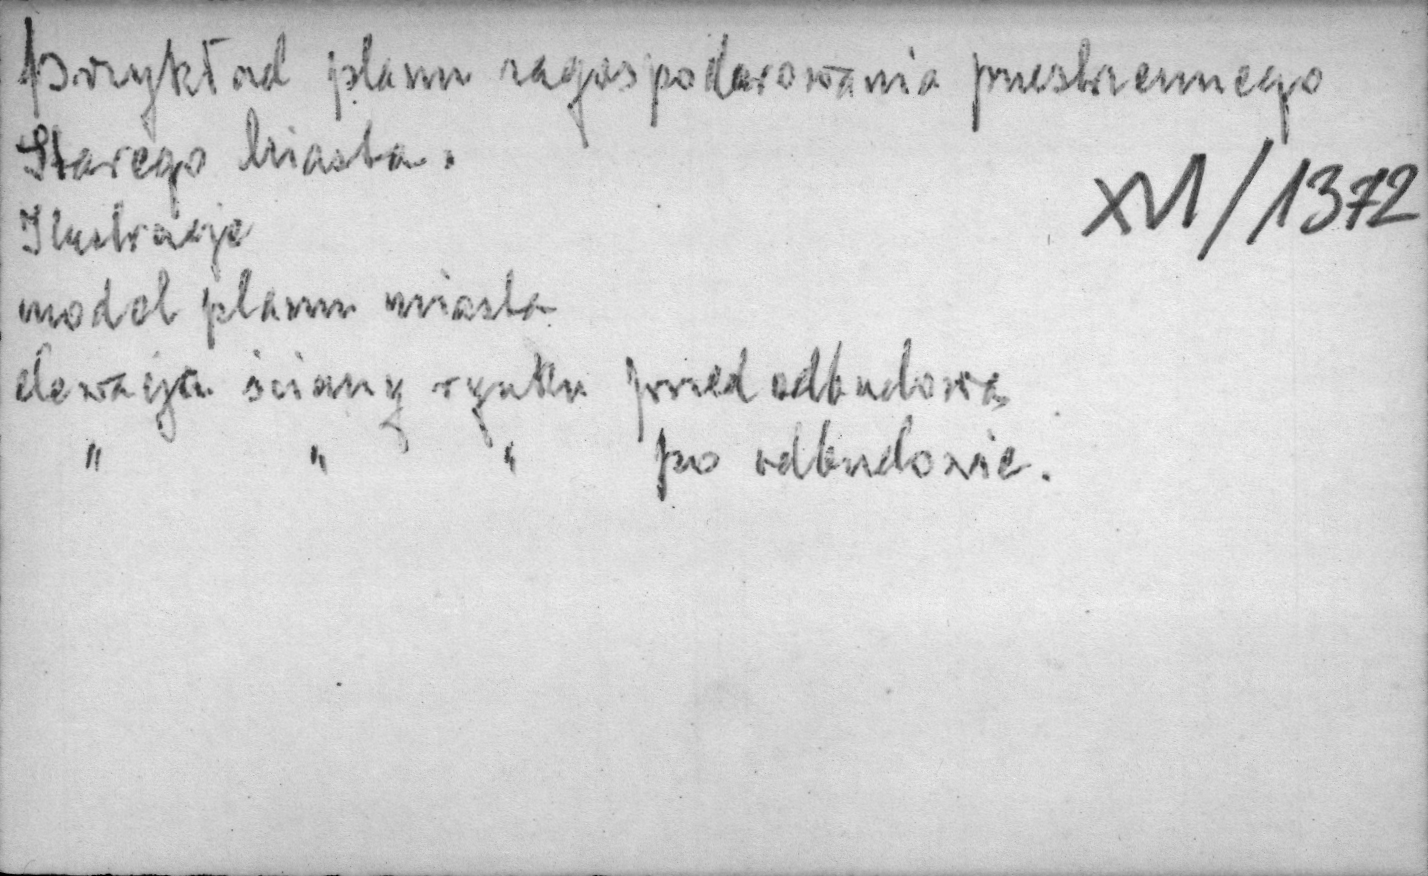 Przykład planu zagospodarowania przestrzennego
Starego Miasta.
XVI/1372
Ilustracje
model planu miasta
elewacja ściany rynku przed odbudową
" " " po odbudowie.